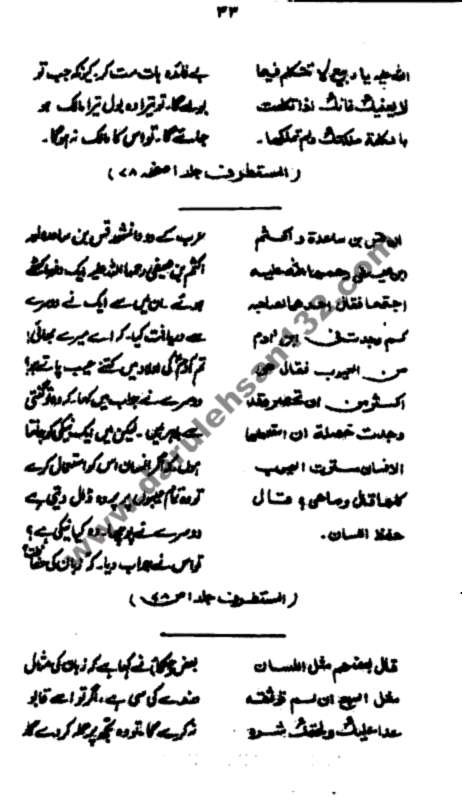 ٣٣
الله عليه يا ربيع لا تتكلم فيما
لا يعنيك فانك اذا تكلمت
بالكلمة ملكتك ولم تملكها۔
بے فائدہ بات مت کر، کیونکہ جب تو
بولے گا۔ تو تیرا وہ بول تیرا مالک ہو
جائے گا۔ تو اس کا مالک نہ ہوگا۔
(المستطرف جلد ١ صفحہ ٧٨)
ان قس بن ساعدة و اكثم
ابن صيفي رحمهما الله عليه
اجتمعا فقال احدهما لصاحبه
كم وجدت في ابن آدم
من العيوب فقال هي
اكثر من ان تحصر وقد
وجدت خصلة ان استعملها
الانسان سترت العيوب
كلها قال وما هي؟ قال
حفظ اللسان.
عرب کے دو دانشور قس بن ساعدہ اور
اکثم بن صیفی رحمہما اللہ علیہ ایک دفعہ اکٹھے
ہوئے۔ ان میں سے ایک نے دوسرے
سے دریافت کیا۔ کہ اے میرے بھائی!
تم آدم کی اولاد میں کتنے عیب پاتے ہو؟
دوسرے نے جواب میں کہا، کہ وہ تو گنتی
سے باہر ہیں۔ لیکن میں ایک نیکی کو جانتا
ہوں، کہ اگر انسان اس کو استعمال کرے
تو وہ تمام عیبوں پر پردہ ڈال دیتی ہے
دوسرے نے پوچھا۔ وہ کیا نیکی ہے؟
تو اس نے جواب دیا۔ کہ زبان کی حفاظت
(المستطرف جلد ١ ص ٧٨)
قال بعضهم مثل اللسان
مثل السبع ان لم توثقه
عدا عليك ولحقك شره
بعض نے کہا ہے کہ زبان کی مثال
درندے کی سی ہے، اگر تو اسے قابو
نہ کرے گا، تو وہ تجھ پر حملہ کر دے گا
www.darulehsan132.com